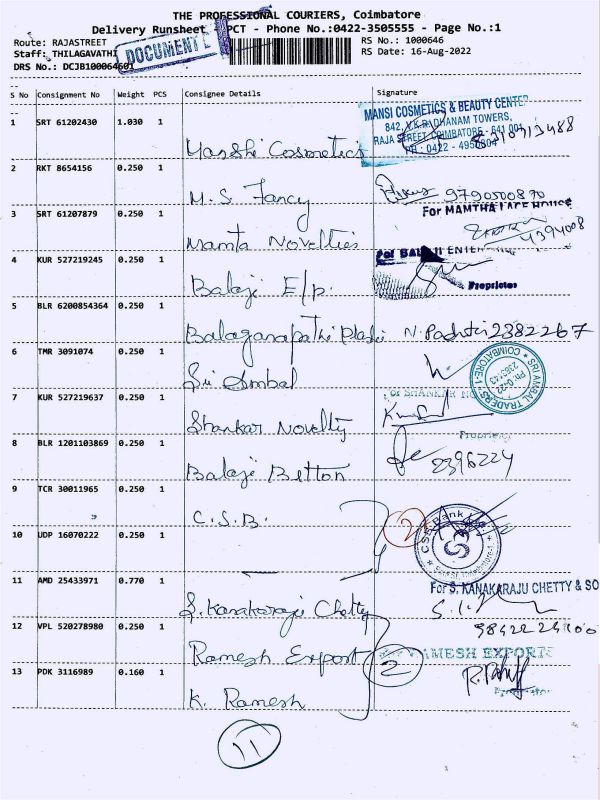 THE PROFESSIONAL COURIERS, Coimbatore
Delivery Runsheet PCT - Phone No.:0422-3505555 - Page No.:1
Route: RAJASTREET
RS No.: 1000646
Staff: THILAGAVATHI
DOCUMENT
RS Date: 16-Aug-2022
DRS No.: DCJB100064601
S No Consignment No Weight PCS Consignee Details Signature
1 SRT 61202430 1.030 1
MANSI COSMETICS & BEAUTY CENTER
842, V.K. RADHANAM TOWERS,
RAJA STREET COIMBATORE - 641 001
PH: 0422 -
Cosmetics
2 RKT 8654156 0.250 1
M.S. Fancy 9790500870
3 SRT 61207879 0.250 1
For MAMTHA LACE HOUSE
Mamta Novelties 4394008
4 KUR 527219245 0.250 1
For BALAJI ENTER
Balaji E/p. Proprietor
5 BLR 6200854364 0.250 1
Balaganapathi 2382267
6 TMR 3091074 0.250 1
Sri Ambal
SRI AMBAL TRADERS
COIMBATORE-1
Ph: 0422
7 KUR 527219637 0.250 1
For SHANKAR
Shankar Novelty
Proprietor
8 BLR 1201103869 0.250 1
Balaji Button 2396224
9 TCR 30011965 0.250 1
C.S.B. 2
CSB Bank
10 UDP 16070222 0.250 1
11 AMD 25433971 0.770 1
For S. KANAKARAJU CHETTY & SO
S. Kanakaraju Chetty
12 VPL 520278980 0.250 1
Ramesh Export 2
RAMESH EXPORTS
13 PDK 3116989 0.160 1
K. Ramesh
11